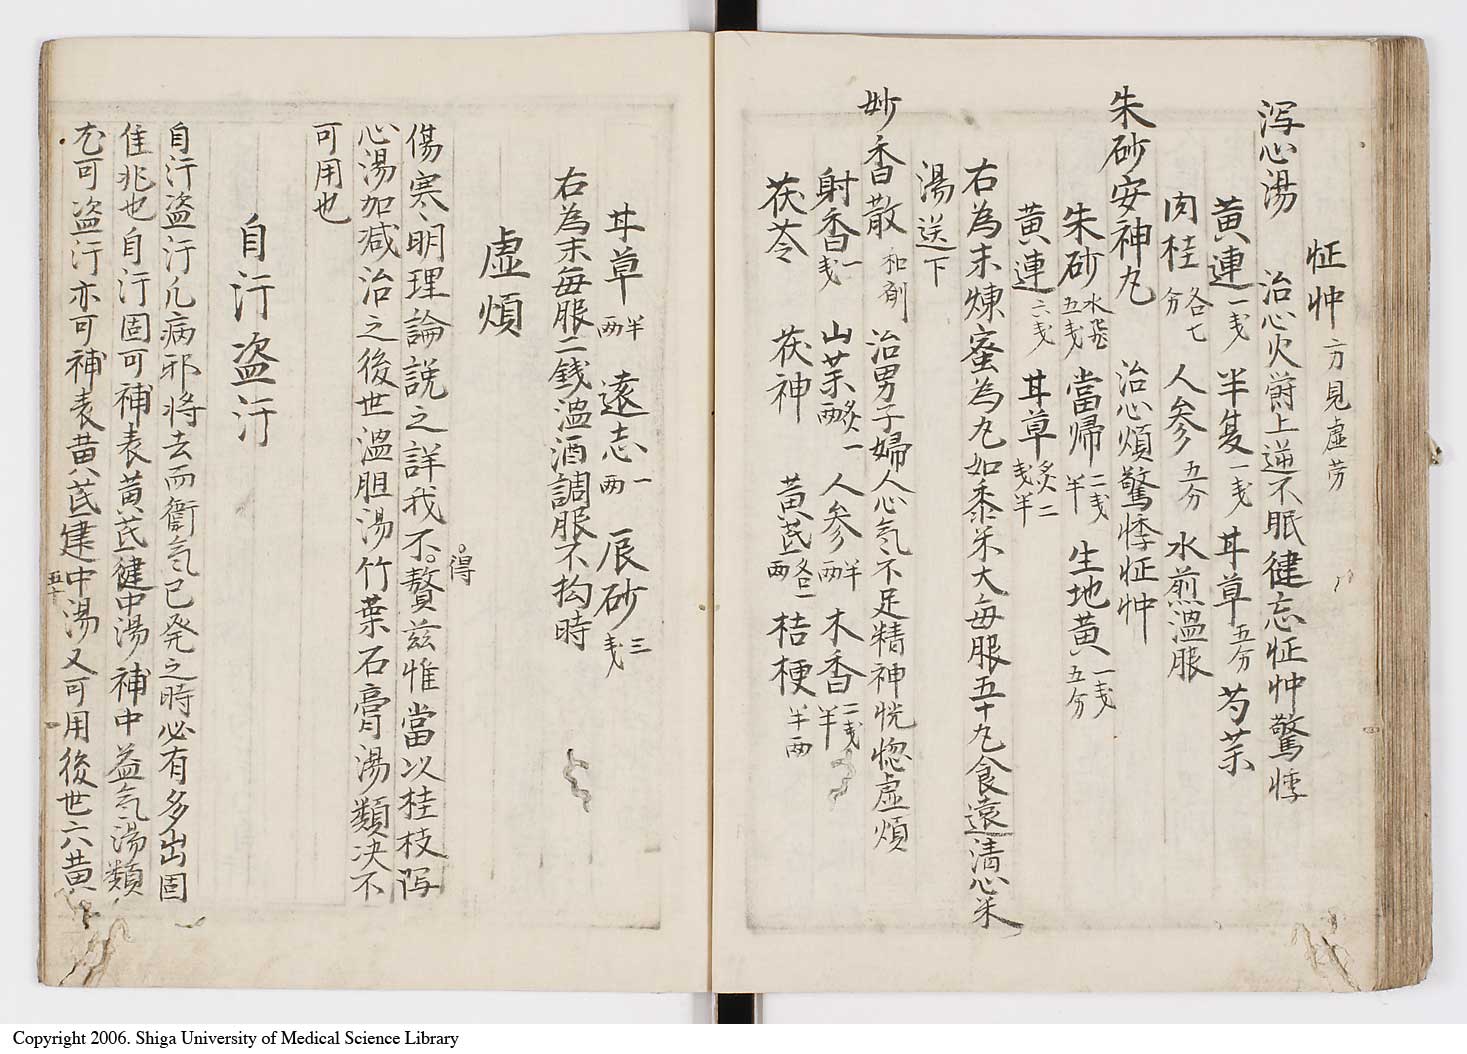 怔忡 方見虛労
泻心湯 治心火欝上逆不眠健忘怔忡驚悸
黄連一戋 半夏一戋 甘草五分 芍茶
肉桂各七分 人参五分 水煎温服
朱砂安神丸 治心煩驚悸怔忡
朱砂水飛五戋 當帰二戋半 生地黄一戋五分
黄連六戋 甘草炙二戋半
右為末煉蜜為丸如黍米大毎服五十丸食遠清心米
湯送下
妙香散 和剤 治男子婦人心気不足精神恍惚虛煩
射香一戋 山茱炙一两 人参半两 木香二戋半
茯苓 茯神 黄芪各一两 桔梗半两
甘草半两 遠志一两 辰砂三戋
右為末毎服二錢温酒調服不拘時
虛煩
傷寒明理論説之詳我不得贅茲惟當以桂枝泻
心湯加减治之後世温胆湯竹葉石膏湯類决不
可用也
自汗盗汗
自汗盗汗凡病邪将去而衞気已発之時必有多出固
佳兆也自汗固可補表黄芪健中湯補中益気湯類
尤可盗汗亦可補表黄芪建中湯又可用後世六黄
五十
Copyright 2006. Shiga University of Medical Science Library